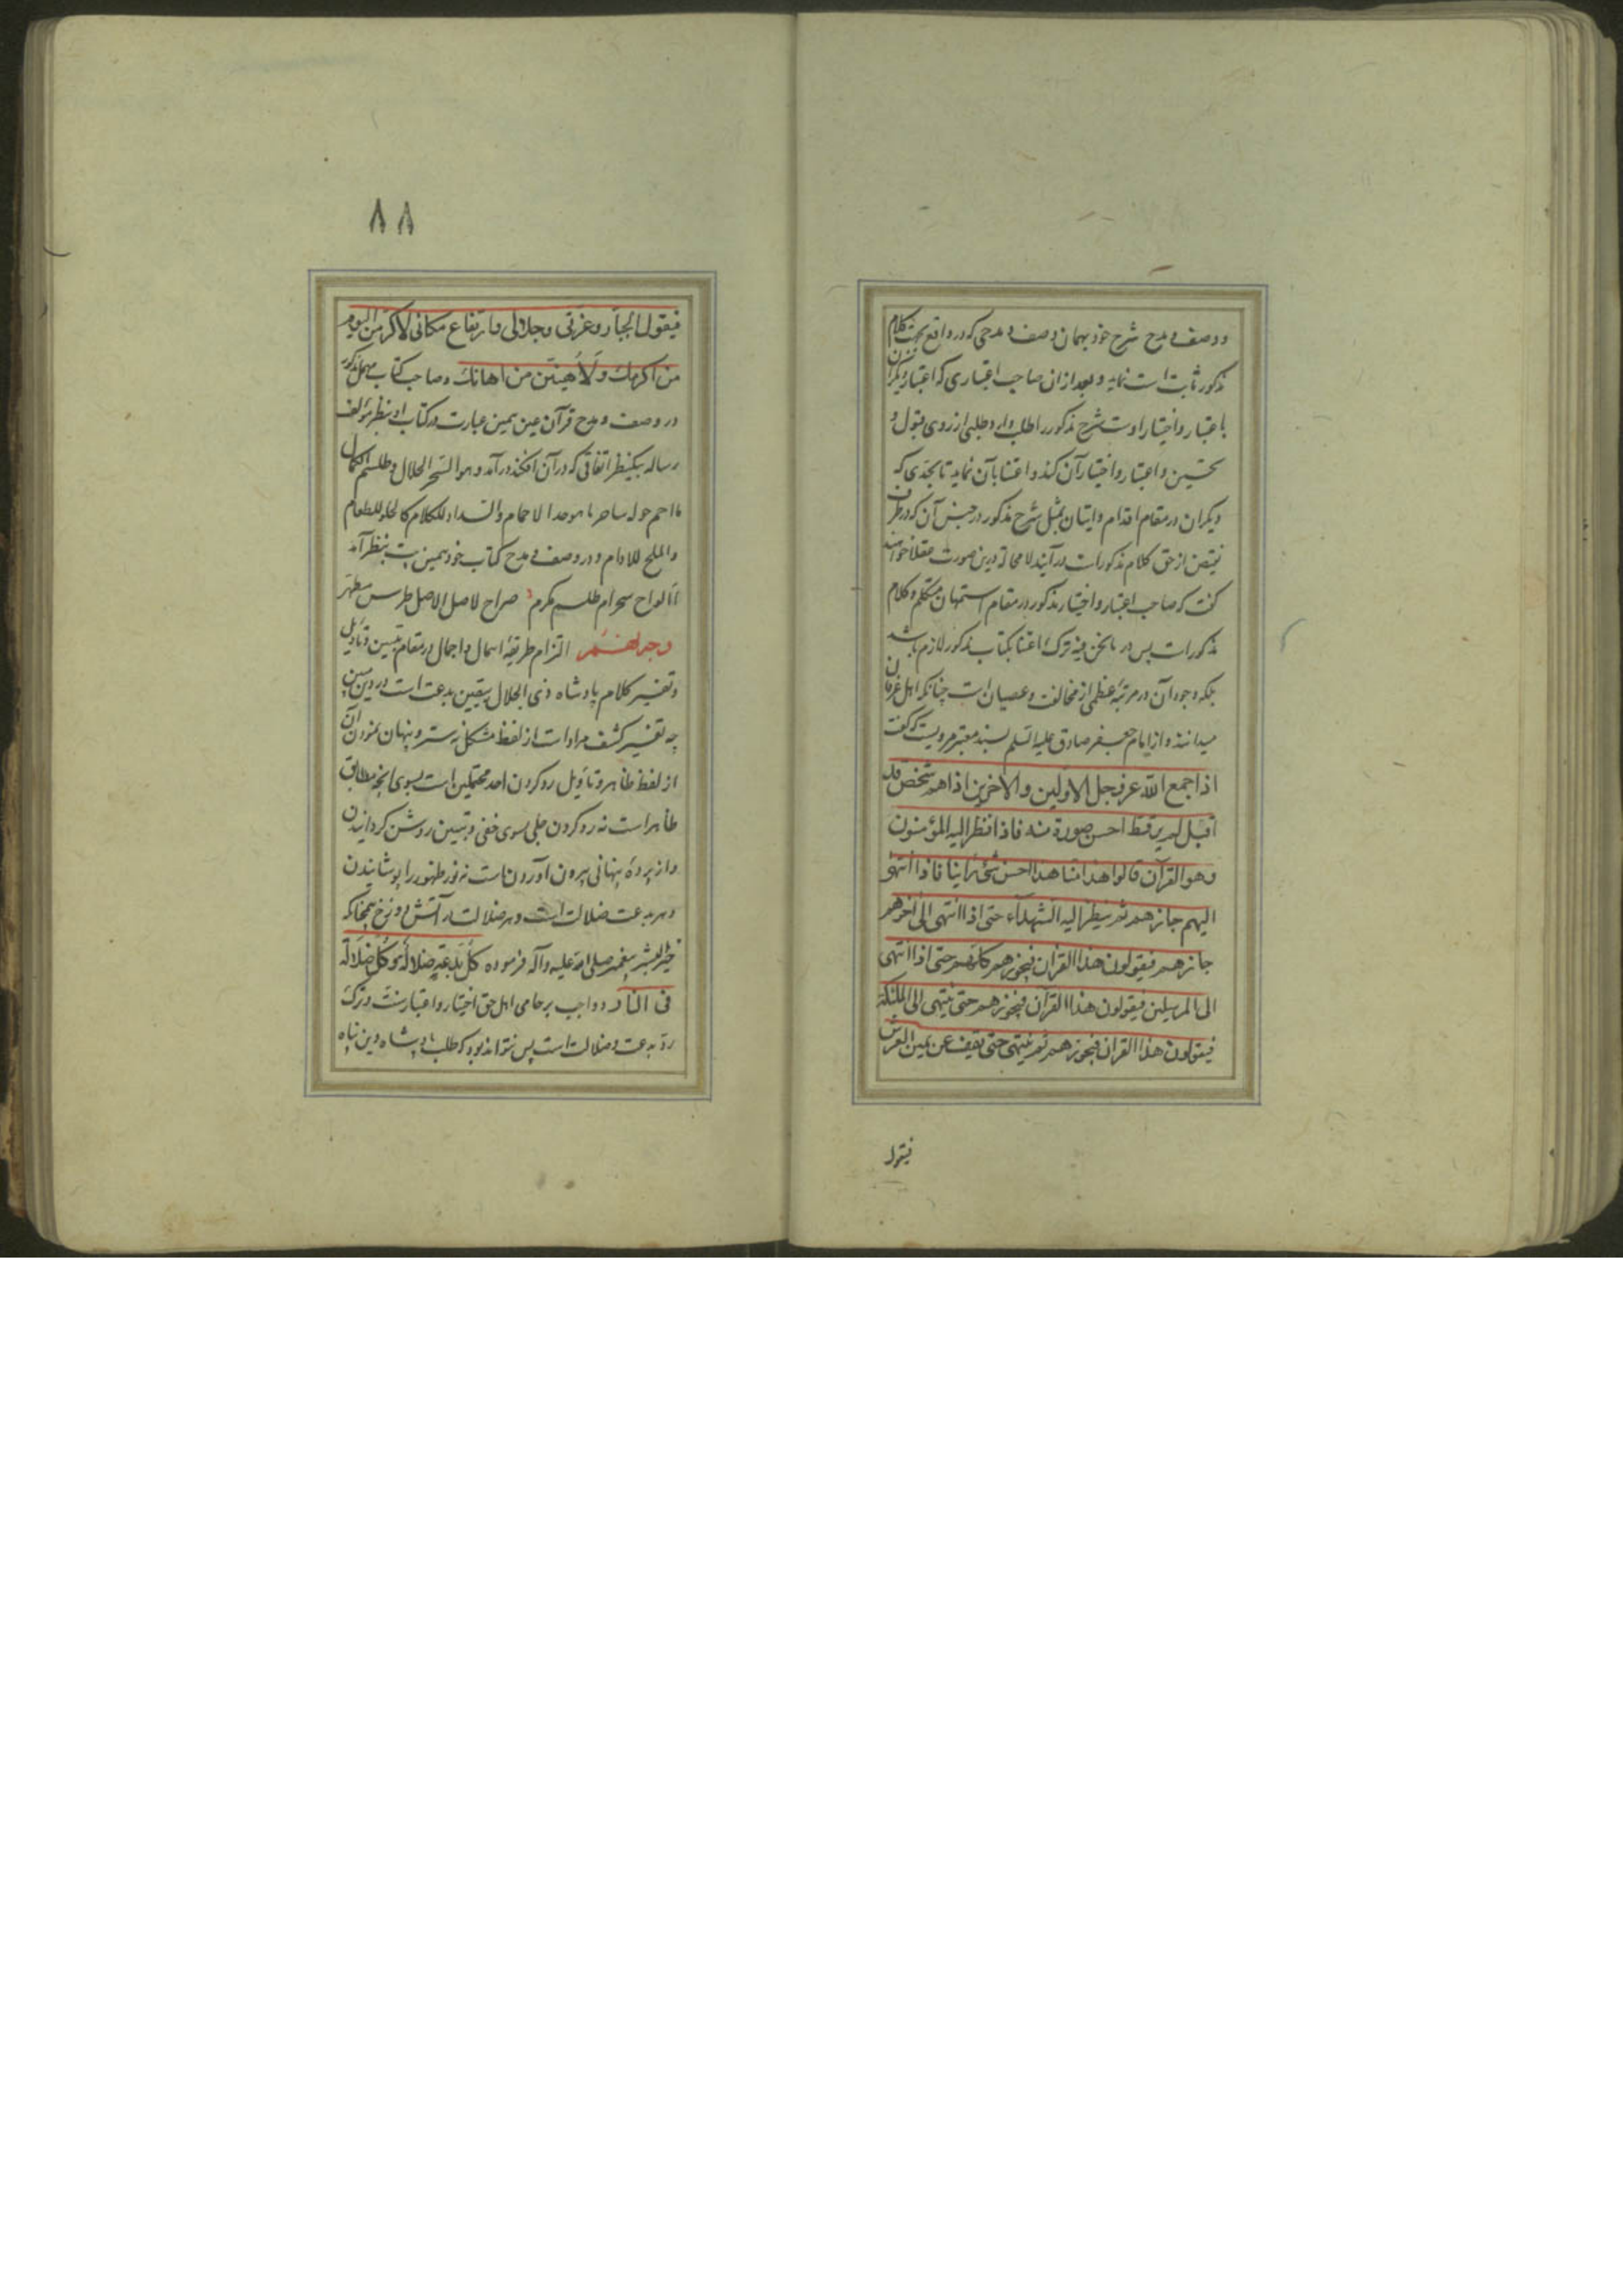 و وصف و مدح شرح خود بهمان وصف و مدحی که در واقع بجهت کلام
مذکور ثابت است نماید و بعد از ان صاحب اعتباری که اعتبار دیگران
باعتبار و اختیار اوست شرح مذکور را طلب دارد طلبی از روی قبول و
تحسین و اعتبار و اختیار آن کند و اعتنا بآن نماید تا بحدی که
دیگران در مقام اقدام و ایتان بمثل شرح مذکور در جنس آن که در طرف
نقیض از حق کلام مذکورات در آیند لا محاله درین صورت عقلا خواهند
گفت که صاحب اعتبار و اختیار مذکور در مقام استهان متکلم و کلام
مذکورات پس در ما نحن فیه ترک اعتنا بکتاب مذکور لازم باشد
بلکه وجود آن در مرتبه عظمی از مخالفت و عصیان است چنانکه اهل عرفان
میدانند و از امام جعفر صادق علیه السلم بسند معتبر مرویست که گفت
اذا جمع الله عز وجل الاولین و الاخرین اذا هم بشخص قد
اقبل لم یر قط احسن صورة منه فاذا نظر الیه المؤمنون
و هو القرآن قالوا هذا منا هذا احسن شئ راینا فاذا انتهی
الیهم جازهم ثم ینظر الیه الشهداء حتی اذا انتهی الی آخرهم
جازهم فیقولون هذا القرآن فیجوزهم کلهم حتی اذا انتهی
الی المرسلین فیقولون هذا القرآن فیجوزهم حتی ینتهی الی الملئکة
فیقولون هذا القرآن فیجوزهم ثم ینتهی حتی یقف عن یمین العرش
فیقول
۸۸
فیقول الجبار و عزتی و جلالی و ارتفاع مکانی لاکرمن الیوم
من اکرمك و لاهینن من اهانك و صاحب کتاب مهمل مذکور
در وصف و مدح قرآن عین همین عبارت در کتاب او بنظر مؤلف
رساله بیکنظر اتفاقی که در آن افکند در آمد و هو السحر الحلال و طلسم الکمال
ما احم حوله ساحر ما هو صدا الاحمام و السداد للکلام کالحلو للطعام
والملح للادام و در وصف و مدح کتاب خود همین بیت بنظر آمد
الواح سحر ام طلسم مکرم صراح لاصل الاصل طرس مطهر
وجه نهم التزام طریقه اهمال و اجمال در مقام تبیین و تاویل
و تفسیر کلام پادشاه ذی الجلال بیقین بدعت است در دین مبین
چه تفسیر کشف مراد است از لفظ مشکل نه ستر و پنهان نمودن آن
از لفظ ظاهر و تاویل رد کردن احد محتملین است بسوی انچه مطابق
ظاهر است نه رد کردن جلی بسوی خفی و تبیین روشن گردانیدن
و از پرده پنهانی بیرون آوردنست نه نور ظهور را پوشانیدن
و هر بدعت ضلالت است و هر ضلالت در آتش دوزخ همچنانکه
خیر البشر پیغمبر صلی الله علیه و آله فرموده کل بدعة ضلالة و کل ضلالة
فی النار و واجب بر حامی اهل حق اختیار و اعتبار سنت و ترک
رد بدعت و ضلالت است پس نتواند بود که طلب پادشاه دین پناه